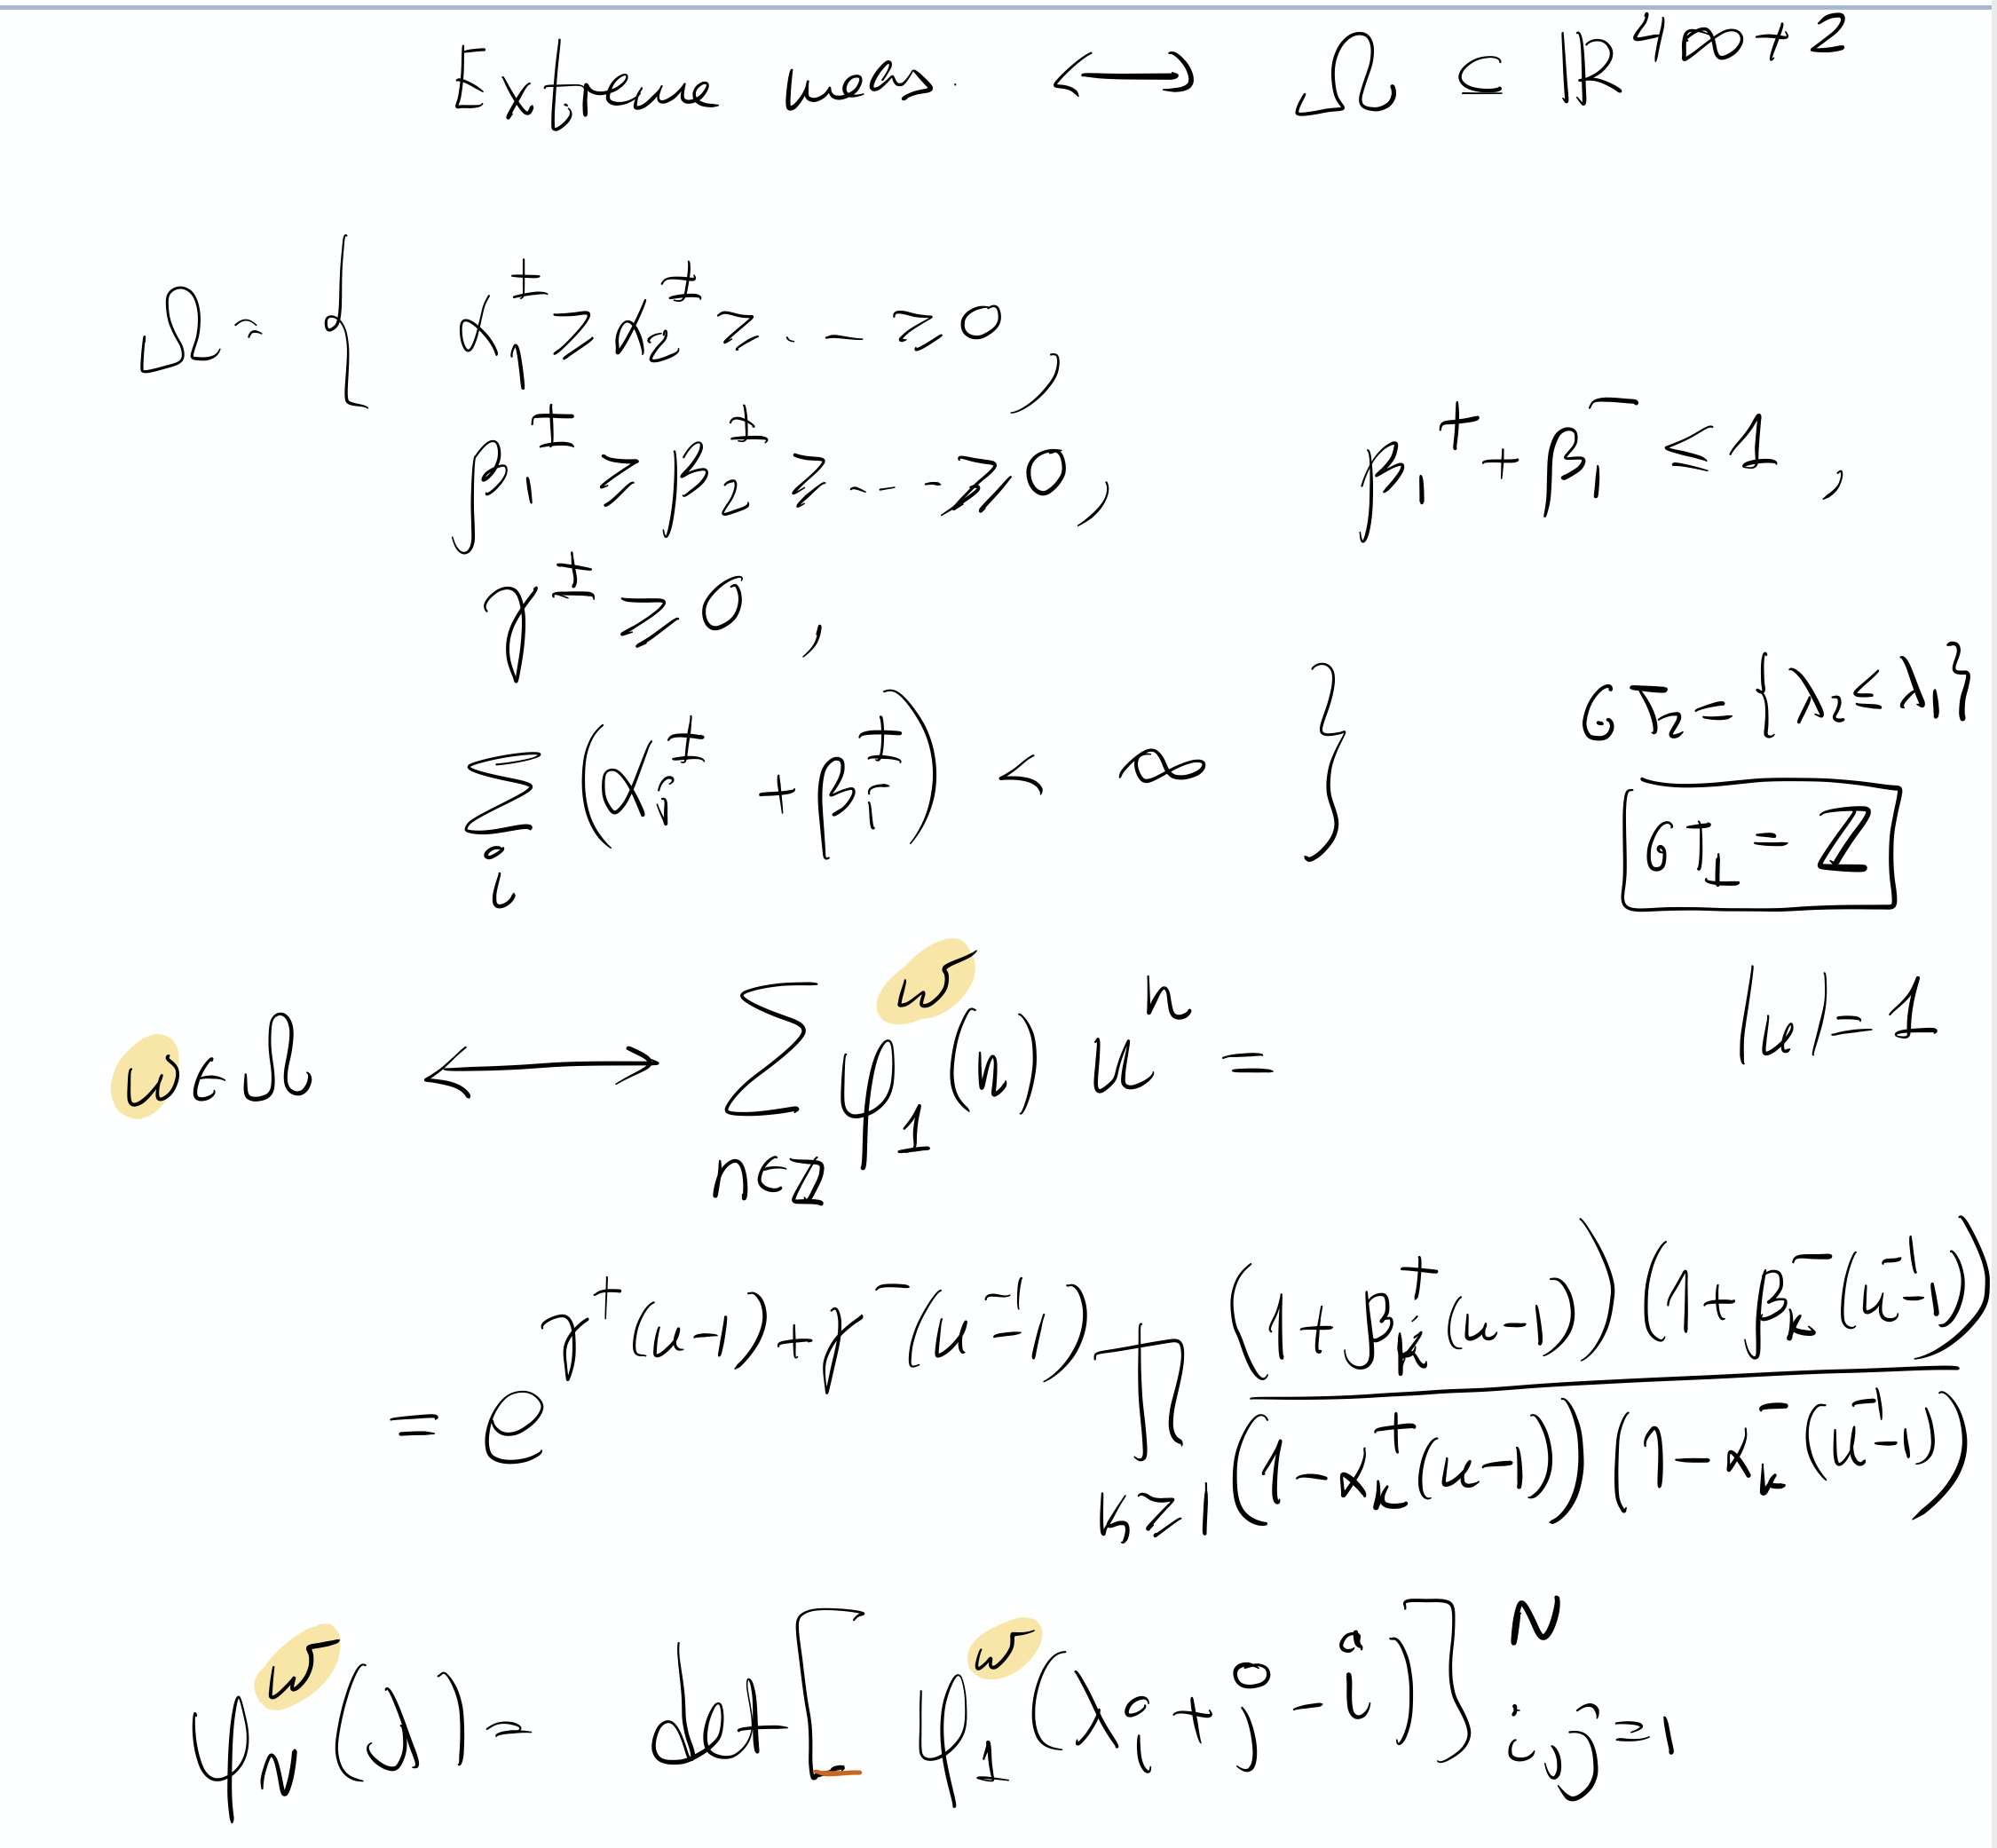 Extreme meas. ⟷ Ω ⊆ ℝ^{4∞+2}
Ω = { α_1^± ≥ α_2^± ≥ ... ≥ 0,
β_1^± ≥ β_2^± ≥ ... ≥ 0, β_1^+ + β_1^- ≤ 1,
γ^± ≥ 0,
Σ_i (α_i^± + β_i^±) < ∞ }
𝔾𝕋_2 = {λ_2 ≤ λ_1}
𝔾𝕋_1 = ℤ
ω ∈ Ω ⟷ Σ_{n∈ℤ} φ_1^ω(n) u^n = |u| = 1
= e^{γ^+(u-1) + γ^-(u^{-1}-1)} ∏_{k≥1} \frac{(1+β_k^+(u-1))(1+β_k^-(u^{-1}-1))}{(1-α_k^+(u-1))(1-α_k^-(u^{-1}-1))}
φ_N^ω(λ) = det[φ_1^ω(λ_i + j - i)]_{i,j=1}^N